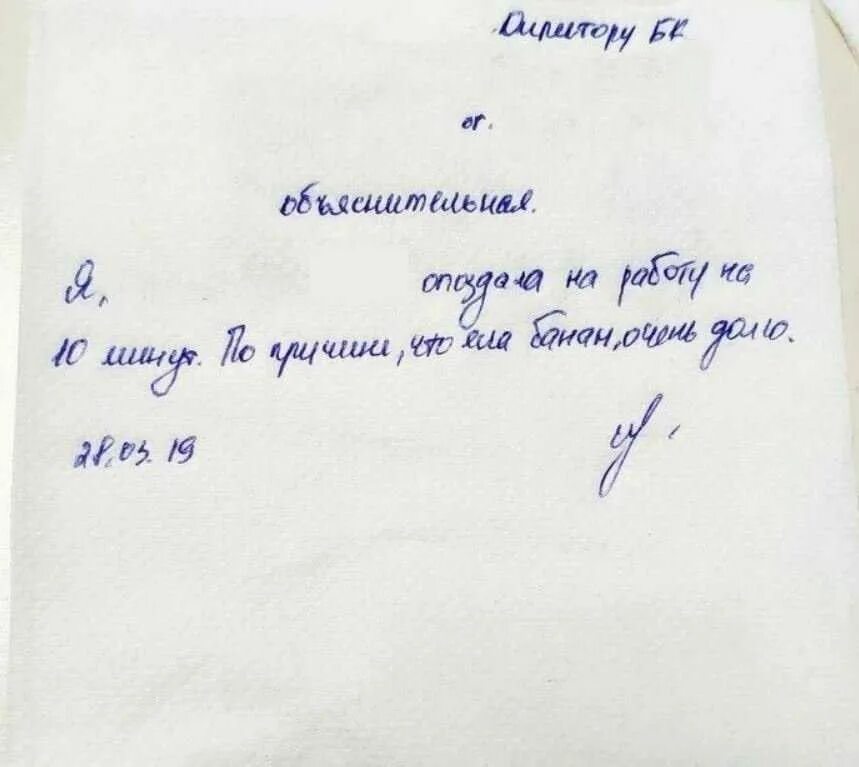 Директору БК
от.
объяснительная.
Я, опоздала на работу на
10 минут. По причине, что ела банан, очень долго.
28.03.19